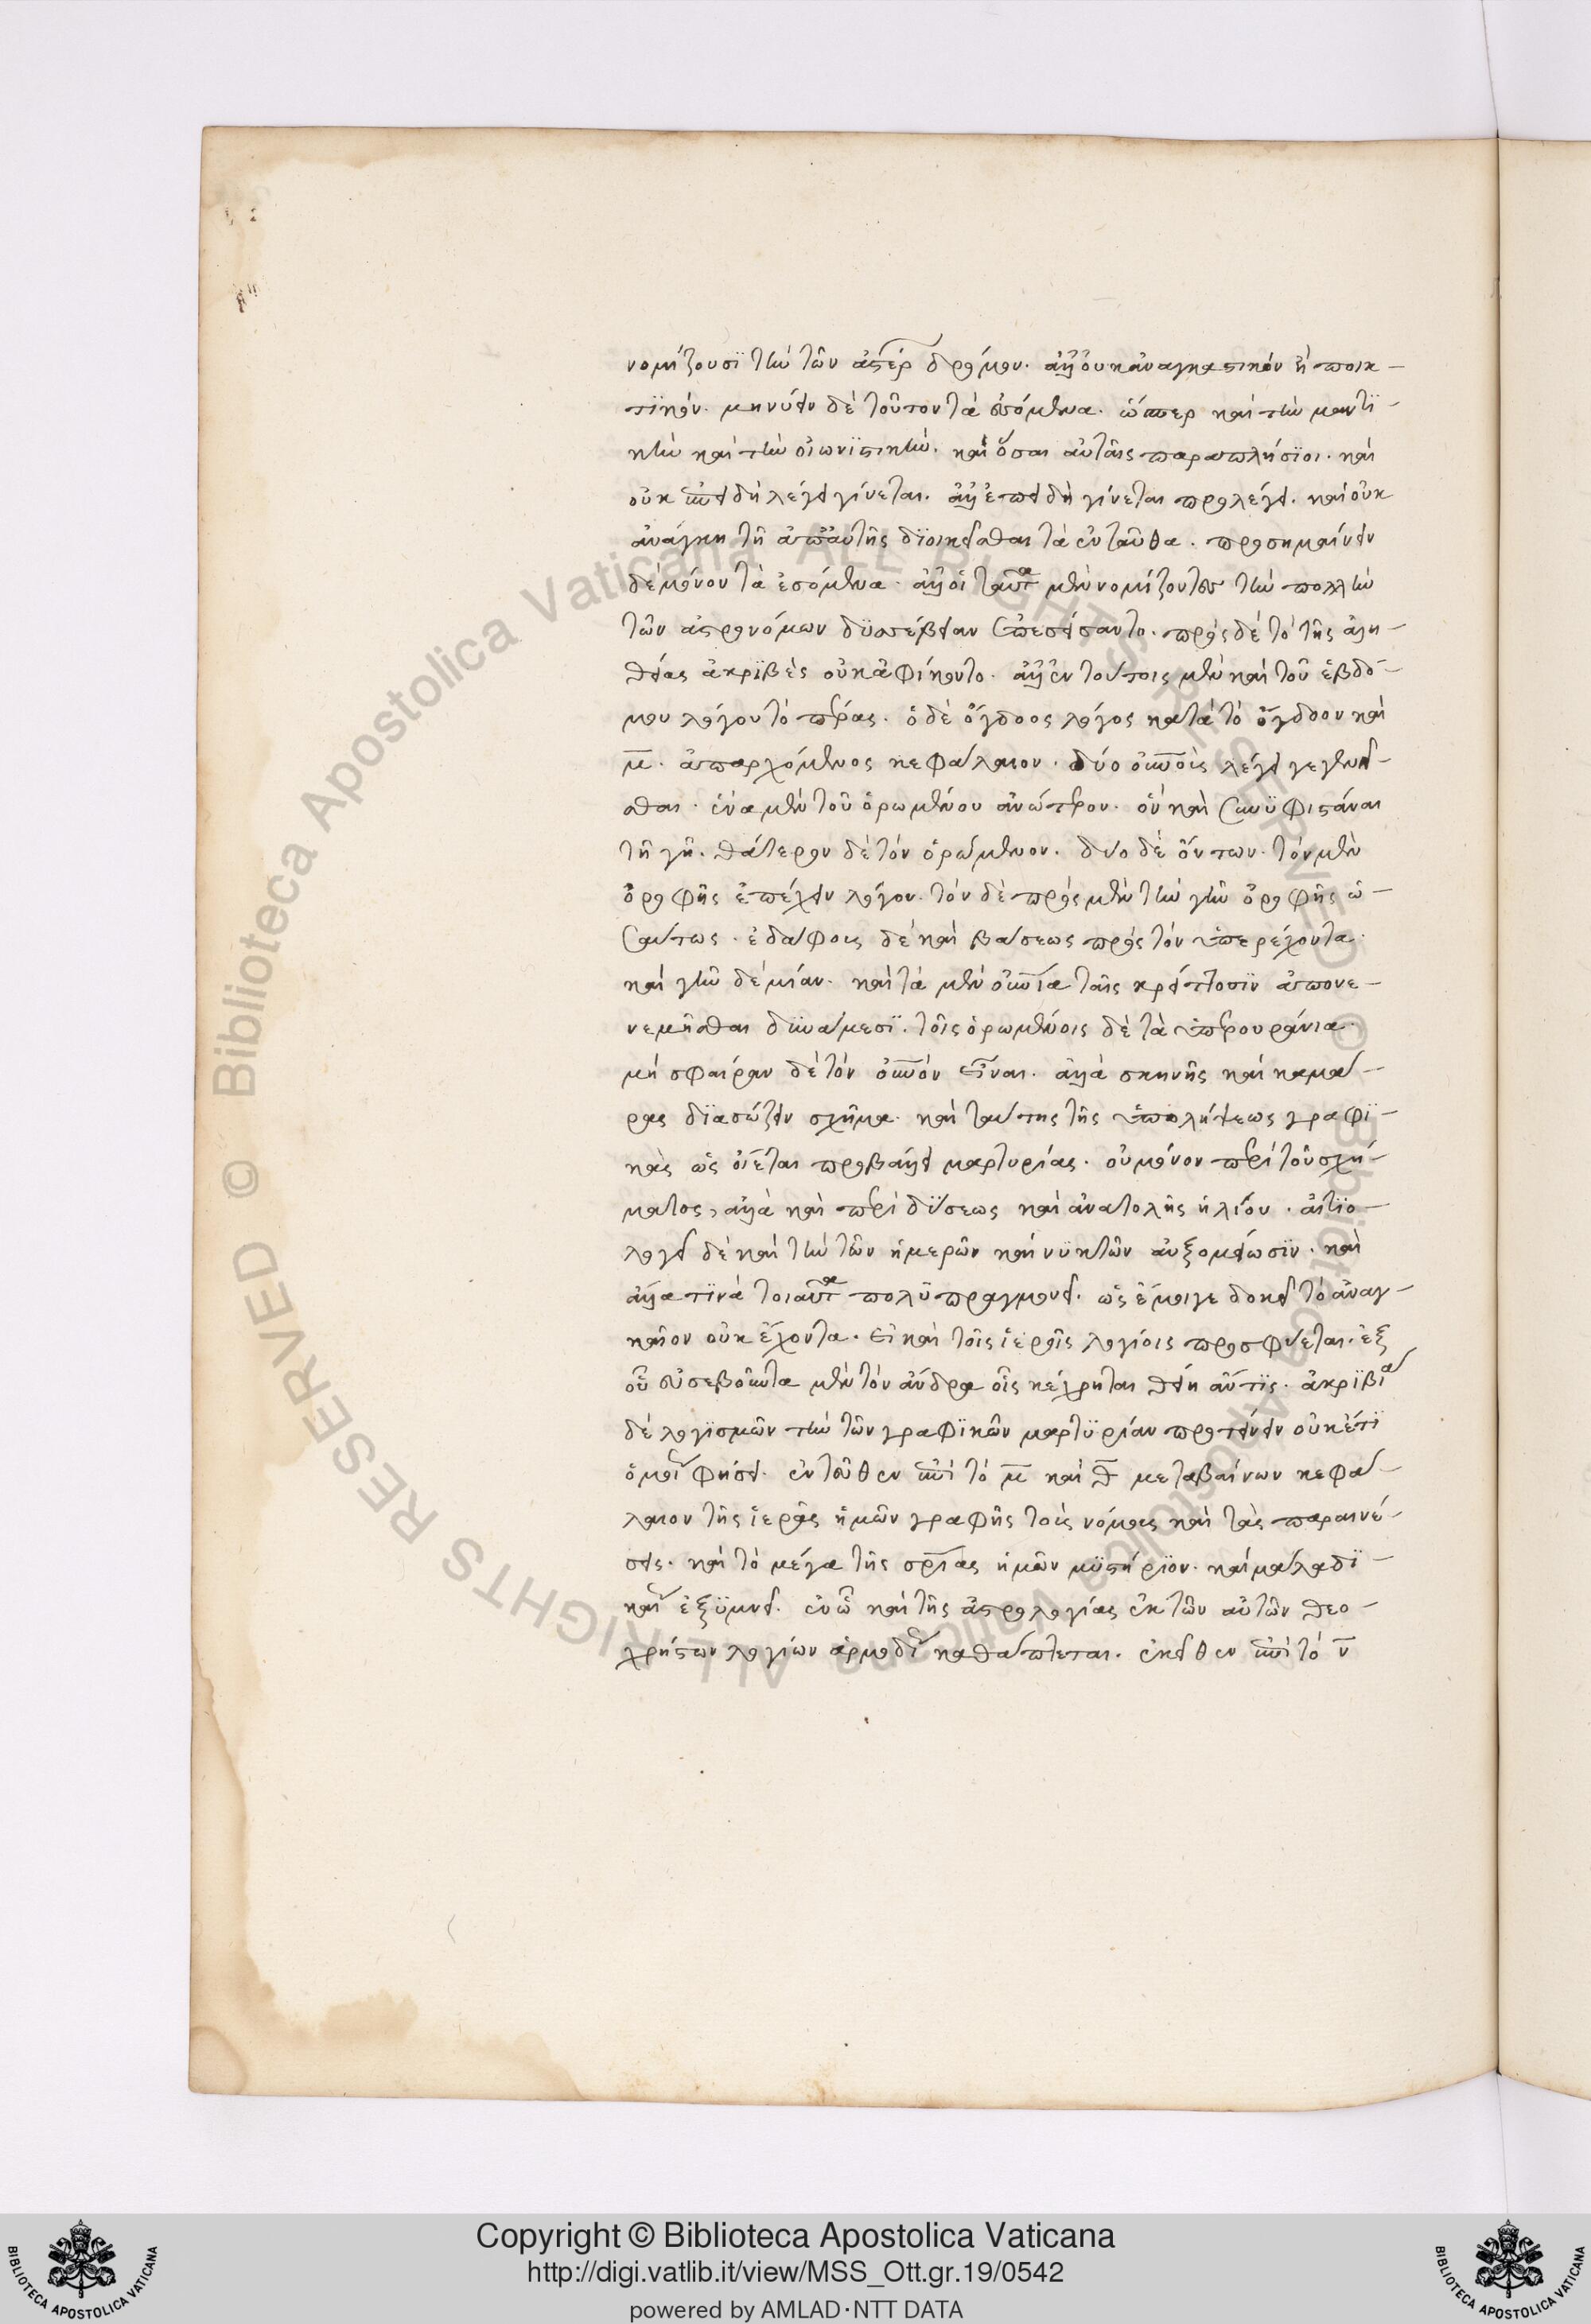 νομίζουσϊ τὴν τῶν ἀστέρ δρόμον. ἀλλ' οὐκ ἀναγκαστικόν ἢ ποιη-
τϊκόν. μηνύειν δὲ τοῦτον τὰ ἑπόμενα. ὥσπερ καὶ τὴν μαντϊ-
κὴν καὶ τὴν οἰωνϊστικὴν. καὶ ὅσαι αὐταῖς παραπλήσϊοι. καὶ
οὐκ ἐπειδὴ λέγει γίνεται. ἀλλ' ἐπειδὴ γίνεται προλέγει. καὶ οὐκ
ἀνάγκη τῇ ἀπ' αὐτῆς δϊοικεῖσθαι τὰ ἐνταῦθα. προσημαίνειν
δὲ μόνον τὰ ἐσόμενα. ἀλλ' οἱ ταῦτα μὲν νομίζοντες τὴν πολλὴν
τῶν ἀστρονόμων δϋσσέβειαν ὑπεστείσαντο. πρὸς δὲ τὸ τῆς ἀλη-
θείας ἀκρϊβὲς οὐκ ἀφίκοντο. ἀλλ' ἐν τούτοις μὲν καὶ τοῦ ἑβδό-
μου λόγου τὸ πέρας. ὁ δὲ ὄγδοος λόγος κατὰ τὸ ὄγδοον καὶ
μ. ἀπαρχόμενος κεφάλαιον. δύο οὐνοὺς λέγει γεγενεῖ-
σθαι. ἕνα μὲν τοῦ ὁρωμένου ἀνώτερον. ὃν καὶ συνϋφιστάναι
τῇ γῇ. θάτερον δὲ τὸν ὁρώμενον. δύο δὲ ὄντων. τὸν μὲν
ὀροφῆς ἐπέχειν λόγον. τὸν δὲ πρὸς μὲν τὴν γῆν ὀροφῆς ὡ-
σαύτως. ἐδάφους δὲ καὶ βάσεως πρὸς τὸν ὑπερέχοντα.
καὶ γῆν δὲ μίαν. καὶ τὰ μὲν οὐνία ταῖς κρείττοσϊν ἀπονε-
νεμῆσθαι δϋνάμεσϊ. τοῖς ὁρωμένοις δὲ τὰ ὑπερουράνια.
μὴ σφαίραν δὲ τὸν οὐνόν εἶναι. ἀλλὰ σκηνῆς καὶ καμά-
ρας δϊασώζειν σχῆμα. καὶ ταύτης τῆς ὑπολήψεως γραφϊ-
κὰς ὡς οἴεται προβάλλει μαρτυρίας. οὐ μόνον περὶ τοῦ σχή-
ματος, ἀλλὰ καὶ περὶ δύσεως καὶ ἀνατολῆς ἡλίου. αἰτϊο-
λογεῖ δὲ καὶ τὴν τῶν ἡμερῶν καὶ νϋκτῶν αὐξομείωσϊν. καὶ
ἄλλα τϊνὰ τοιαῦτα πολϋπραγμονεῖ. ὡς ἔμοιγε δοκεῖ τὸ ἀναγ-
καῖον οὐκ ἔχοντα. εἰ καὶ τοῖς ἱεροῖς λογίοις προσφύεται. ἐξ
οὗ εὐσεβοῦντα μὲν τὸν ἄνδρα οἷς κέχρηται θείη ἄν τις. ἀκρϊβεία
δὲ λογϊσμῶν τὴν τῶν γραφϊκῶν μαρτϋρίαν προτείνειν οὐκέτϊ
ὁμοί φήσει. ἐντεῦθεν ἐπὶ τὸ μ καὶ θ μεταβαίνων κεφά-
λαιον τῆς ἱερᾶς ἡμῶν γραφῆς τοὺς νόμους καὶ τὰς παραινέ-
σεις. καὶ τὸ μέγα τῆς σρίας ἡμῶν μϋστήρϊον. καὶ μάλα δϊ-
καί ἐξϋμνεῖ. ἐν ᾧ καὶ τῆς ἀστρολογίας ἐκ τῶν αὐτῶν θεο-
χρήστων λογίων ἁρμοδί καθάπτεται. ἐκεῖθεν ἐπὶ τὸ ν
Copyright © Biblioteca Apostolica Vaticana
http://digi.vatlib.it/view/MSS_Ott.gr.19/0542
powered by AMLAD·NTT DATA